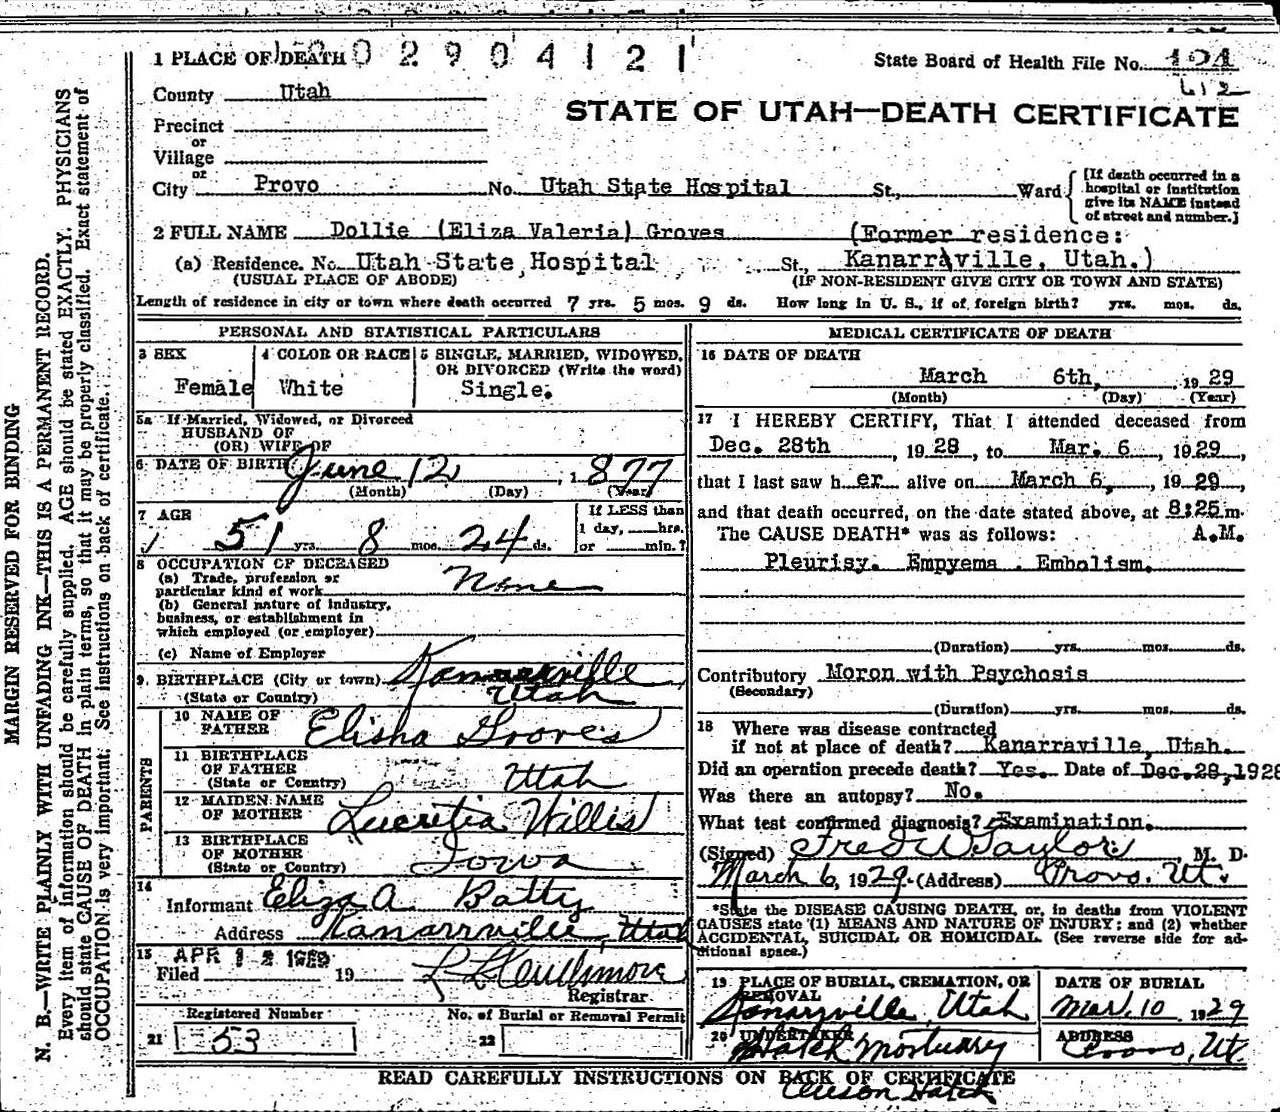 1 PLACE OF DEATH 0 2 9 0 4 1 2 1
State Board of Health File No. 124
612
County Utah
STATE OF UTAH—DEATH CERTIFICATE
Precinct
or
Village
or
City Provo No. Utah State Hospital St., Ward
[If death occurred in a
hospital or institution
give its NAME instead
of street and number.]
2 FULL NAME Dollie (Eliza Valeria) Groves (Former residence:
(a) Residence. No. Utah State Hospital St., Kanarraville, Utah.)
(USUAL PLACE OF ABODE) (IF NON-RESIDENT GIVE CITY OR TOWN AND STATE)
Length of residence in city or town where death occurred 7 yrs. 5 mos. 9 ds. How long in U. S., if of foreign birth? yrs. mos. ds.
PERSONAL AND STATISTICAL PARTICULARS
3 SEX
Female
4 COLOR OR RACE
White
5 SINGLE, MARRIED, WIDOWED,
OR DIVORCED (Write the word)
Single.
5a If Married, Widowed, or Divorced
HUSBAND OF
(OR) WIFE OF
6 DATE OF BIRTH June 12, 1877
(Month) (Day) (Year)
7 AGE
51 yrs. 8 mos. 24 ds.
If LESS than
1 day, hrs.
or min.?
8 OCCUPATION OF DECEASED
(a) Trade, profession or
particular kind of work None
(b) General nature of industry,
business, or establishment in
which employed (or employer)
(c) Name of Employer
9 BIRTHPLACE (City or town) Kanarraville
(State or Country) Utah
PARENTS
10 NAME OF
FATHER Elisha Groves
11 BIRTHPLACE
OF FATHER
(State or Country) Utah
12 MAIDEN NAME
OF MOTHER Lucretia Willis
13 BIRTHPLACE
OF MOTHER
(State or Country) Iowa
14
Informant Eliza A. Batty
Address Kanarrville, Utah
15 APR 12 1929
Filed 19
Registrar
Registered Number
21 53
No. of Burial or Removal Permit
22
MEDICAL CERTIFICATE OF DEATH
16 DATE OF DEATH
March 6th, 1929
(Month) (Day) (Year)
17 I HEREBY CERTIFY, That I attended deceased from
Dec. 28th, 1928, to Mar. 6, 1929,
that I last saw her alive on March 6, 1929,
and that death occurred, on the date stated above, at 8:25 m.
The CAUSE DEATH* was as follows: A.M.
Pleurisy. Empyema. Embolism.
(Duration) yrs. mos. ds.
Contributory Moron with Psychosis
(Secondary)
(Duration) yrs. mos. ds.
18 Where was disease contracted
if not at place of death? Kanarraville, Utah.
Did an operation precede death? Yes. Date of Dec.28,1928
Was there an autopsy? No.
What test confirmed diagnosis? Examination.
(Signed) Fred W Taylor, M. D.
March 6, 1929. (Address) Provo, Ut.
*State the DISEASE CAUSING DEATH, or, in deaths from VIOLENT
CAUSES state (1) MEANS AND NATURE OF INJURY; and (2) whether
ACCIDENTAL, SUICIDAL OR HOMICIDAL. (See reverse side for ad-
ditional space.)
19 PLACE OF BURIAL, CREMATION, OR
REMOVAL
Kanarrville, Utah
DATE OF BURIAL
Mar. 10 1929
20 UNDERTAKER
Hatch Mortuary
ADDRESS
Provo, Ut.
READ CAREFULLY INSTRUCTIONS ON BACK OF CERTIFICATE
Hatch
MARGIN RESERVED FOR BINDING
N. B.—WRITE PLAINLY WITH UNFADING INK—THIS IS A PERMANENT RECORD.
Every item of information should be carefully supplied. AGE should be stated EXACTLY. PHYSICIANS
should state CAUSE OF DEATH in plain terms, so that it may be properly classified. Exact statement of
OCCUPATION is very important. See instructions on back of certificate.